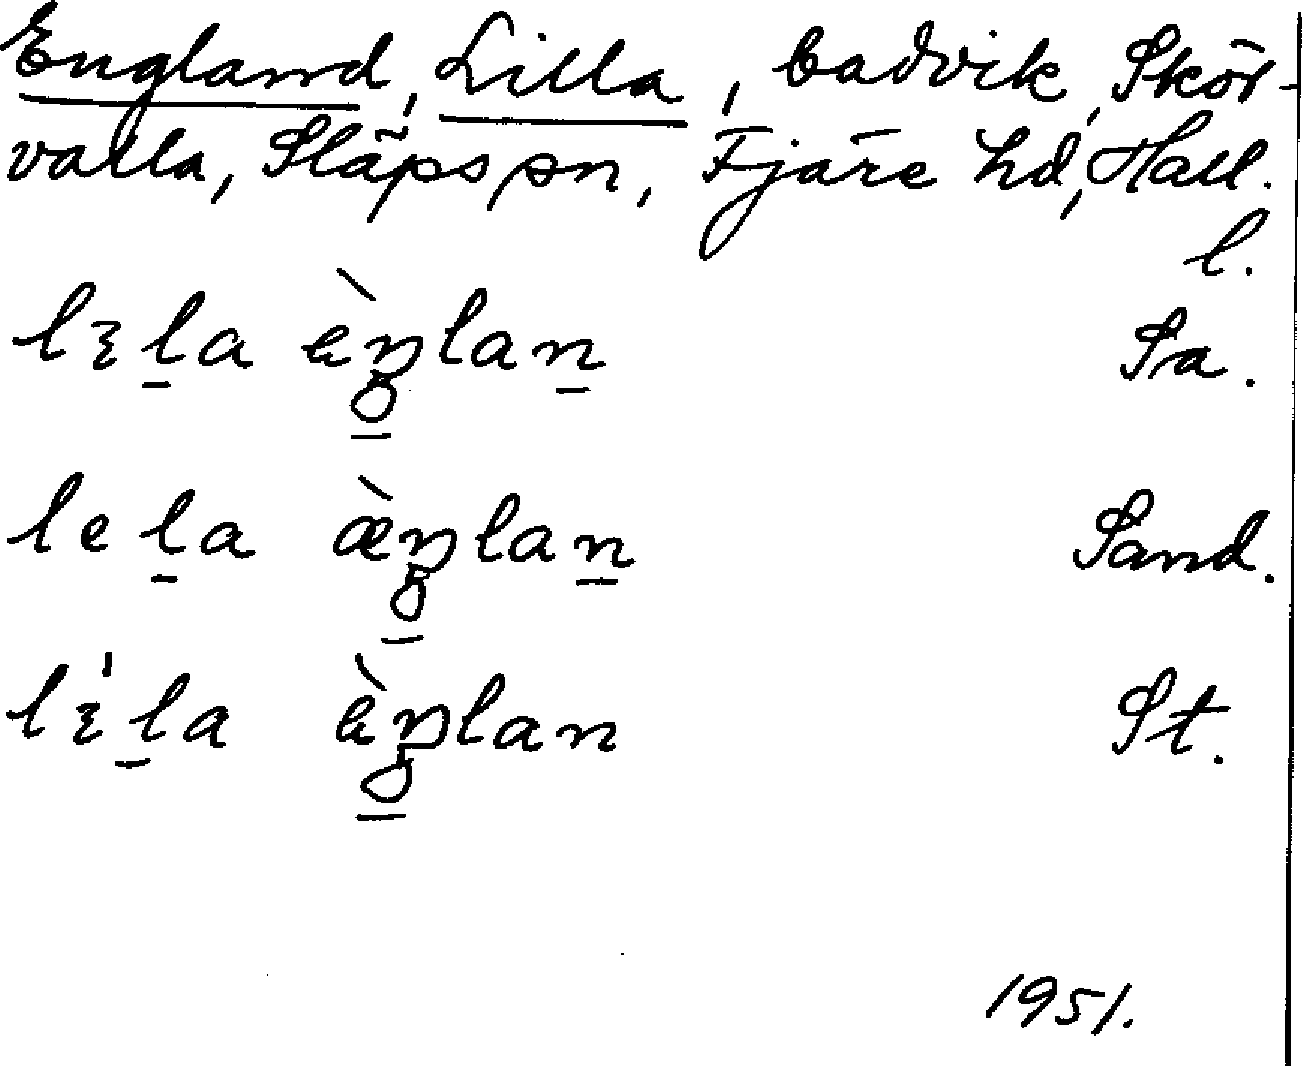 England, Lilla, badvik, Skör-
valla, Släps sn, Fjäre hd, Hall.
l.
lɛl̠a èŋlan̠ Sa.
lel̠a æ̀ŋlan̠ Sand.
lɛ́l̠a èŋlan St.
1951.